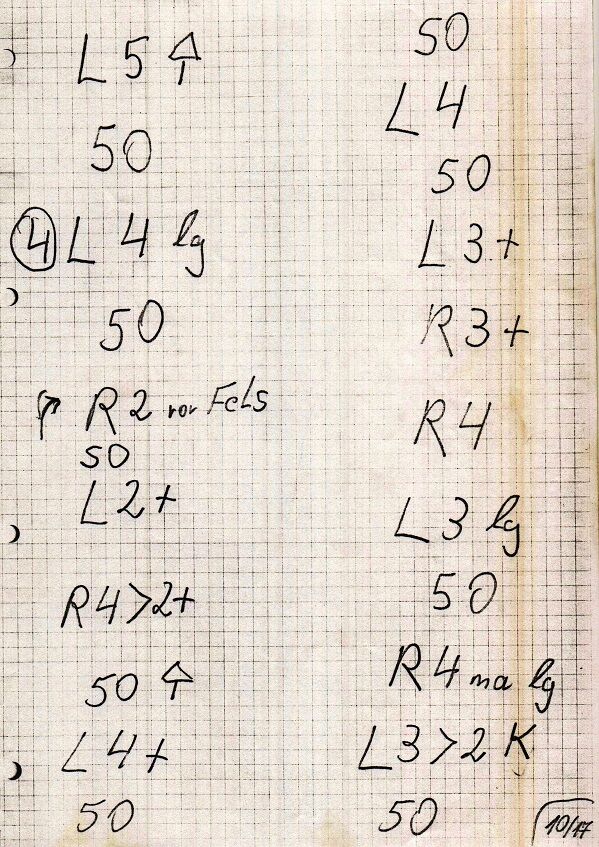 L 5 ↑
50
④ L 4 lg
50
R 2 vor FeLs
50
L 2+
R 4 > 2+
50 ↑
L 4+
50
50
L 4
50
L 3+
R 3+
R 4
L 3 lg
50
R 4 ma lg
L 3 > 2 K
50
10/17